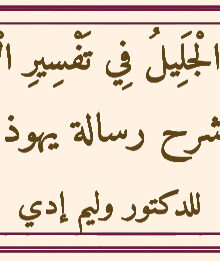 الْجَلِيلُ فِي تَفْسِيرِ
شرح رسالة يهوذ
للدكتور وليم إدي